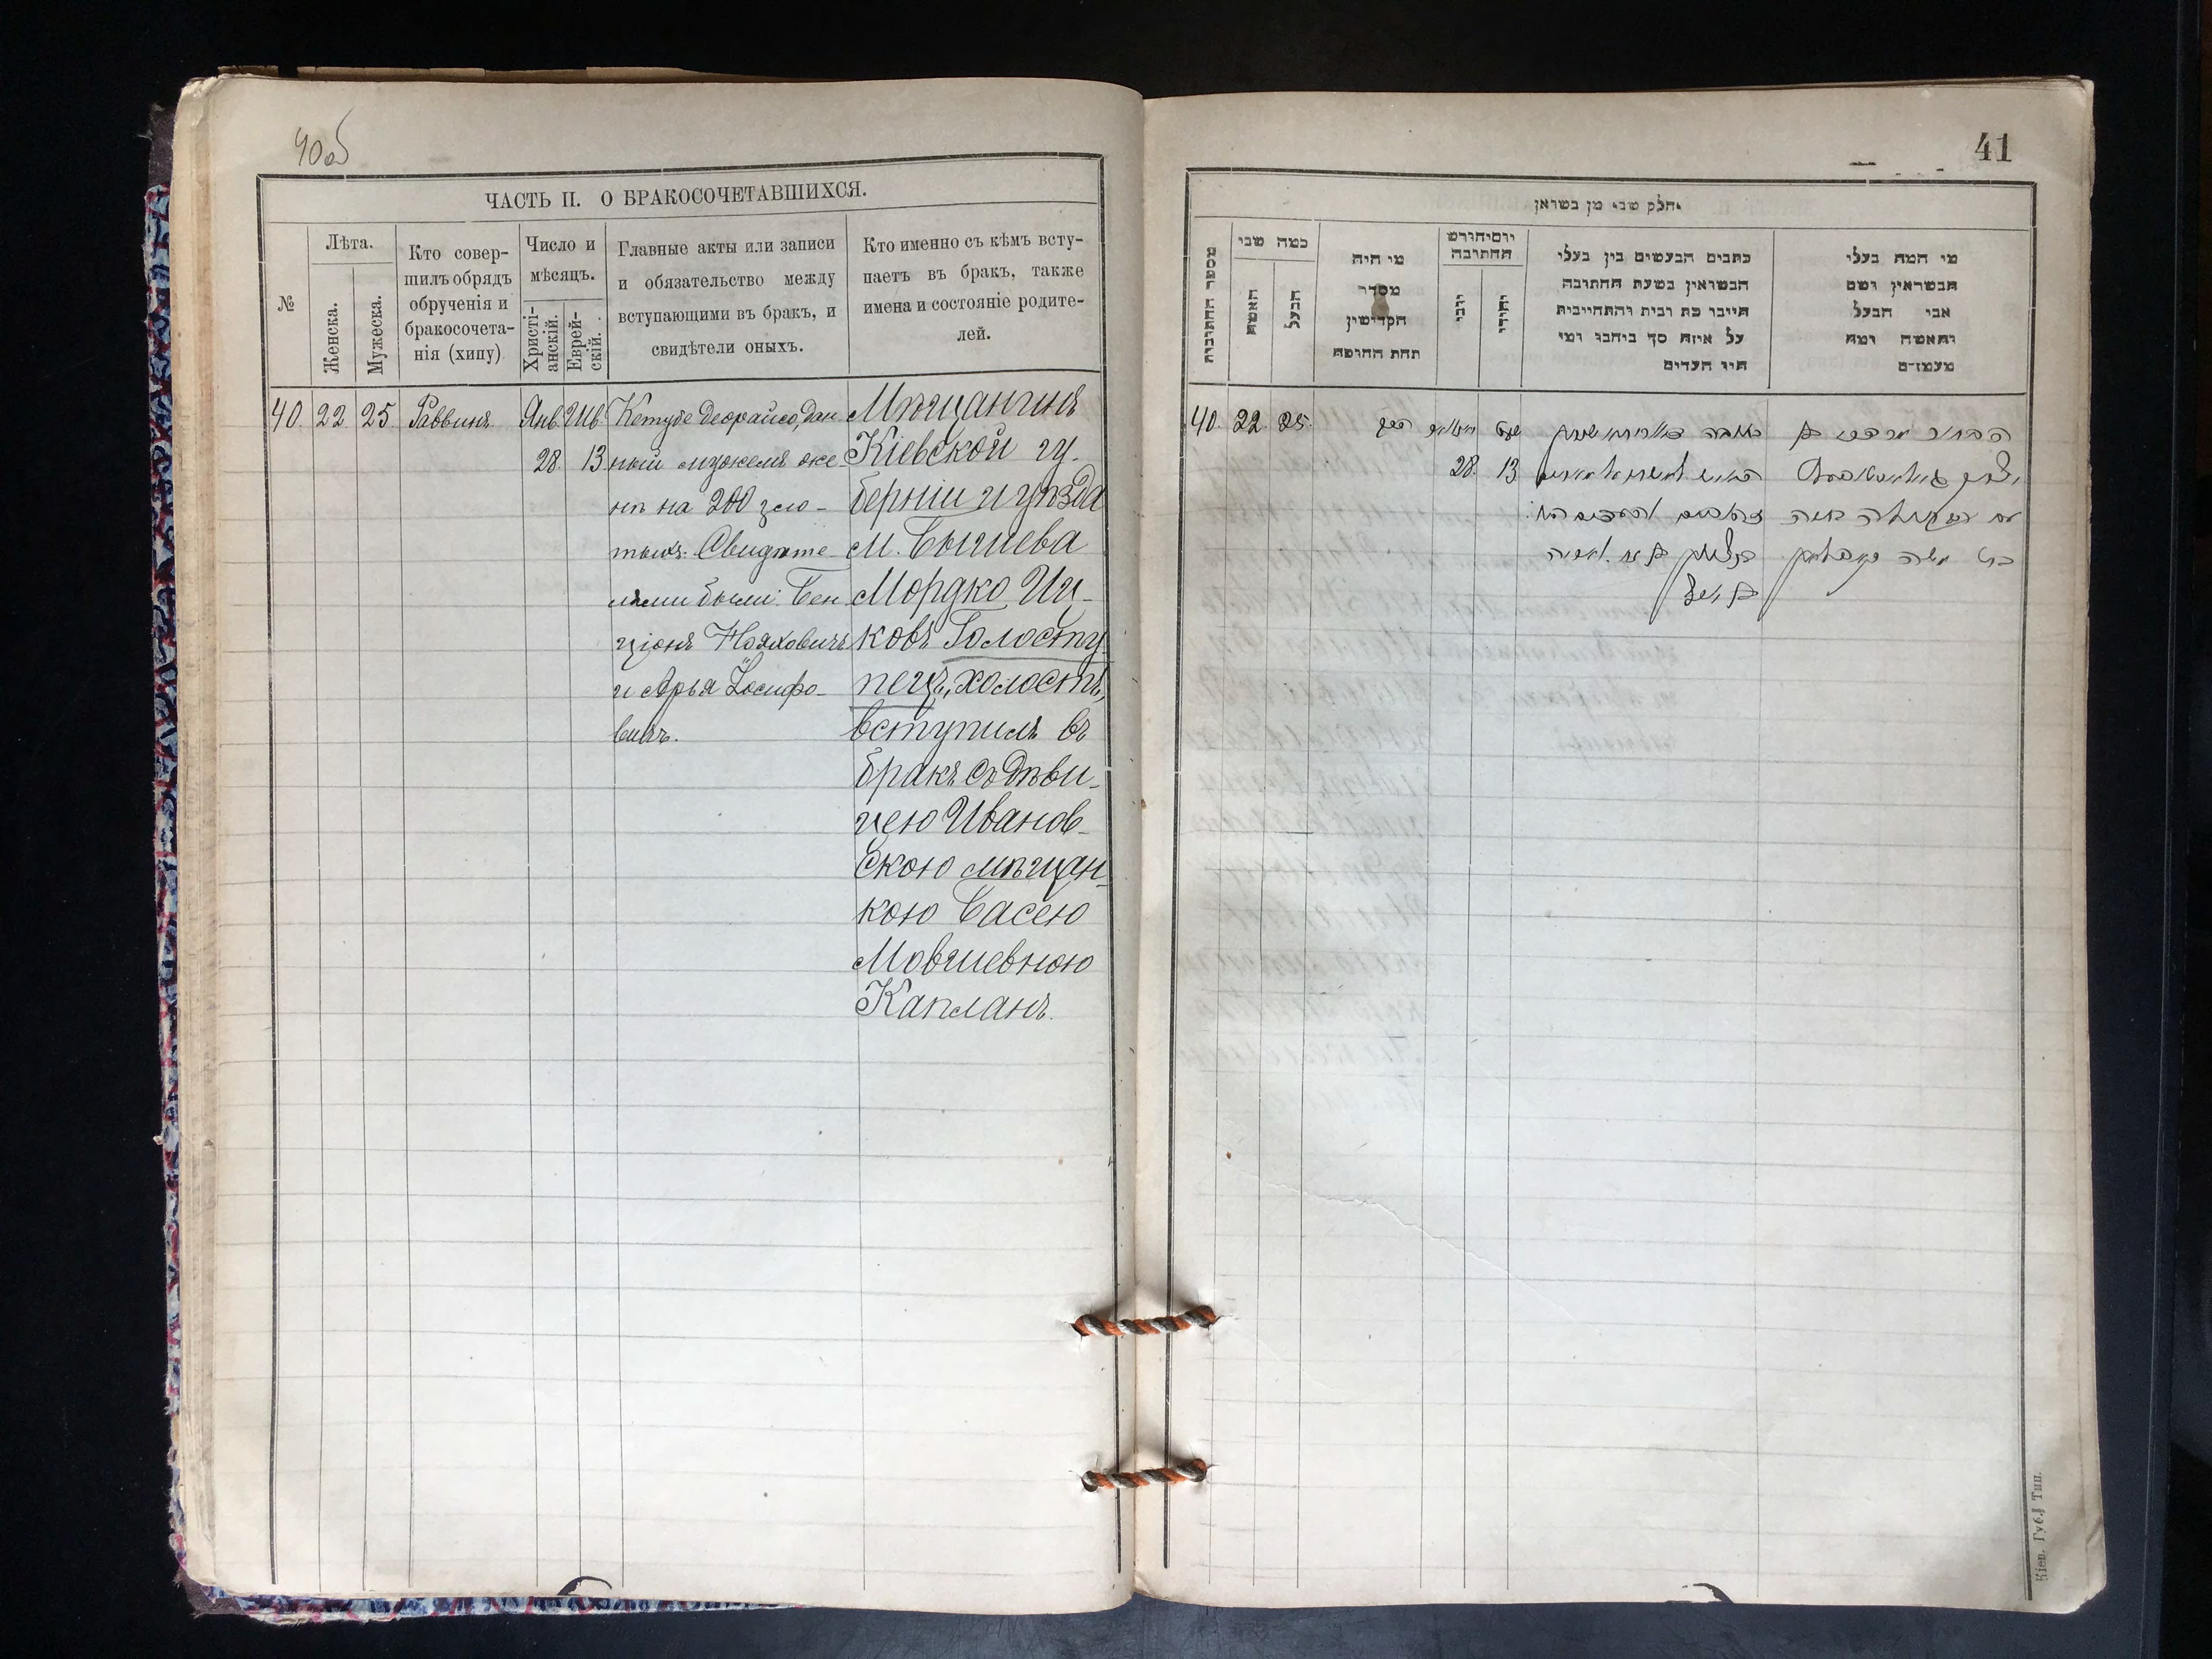 40об
ЧАСТЬ II. О БРАКОСОЧЕТАВШИХСЯ.
№
Лѣта.
Женска.
Мужеска.
Кто совер-
шилъ обрядъ
обрученія и
бракосочета-
нія (хипу)
Число и
мѣсяцъ.
Христі-
анскій.
Еврей-
скій.
Главные акты или записи
и обязательство между
вступающими въ бракъ, и
свидѣтели оныхъ.
Кто именно съ кѣмъ всту-
паетъ въ бракъ, также
имена и состояніе родите-
лей.
40. 22 25. Раввинъ. Янв. Шв.
28. 13
Кетубе Деорайсо, дан-
ный мужемъ же-
нѣ на 200 зло-
тыхъ. Свидѣте-
лями были: Бен
ціонъ Нояховичъ
и Арья Іосифо-
вичъ.
Мѣщанинъ
Кіевской гу-
берніи и уѣзда
м. Бышева
Мордко Иц-
ковъ Голосту-
пецъ, холостъ,
вступилъ въ
бракъ съ дѣви-
цею Иванов-
скою мѣщан-
кою Басею
Мовшевною
Капланъ.
41
חלק שני מן נשואין
מספר החתונות
כמה שני
האשה
הבעל
מי היה
מסדר
הקדושין
תחת החופה
יום וחודש
החתונה
נוצרי
יהודי
כתבים הנעשים בין בעלי
הנשואין בשעת החתונה
על איזה סך
היו העדים
מי המה בעלי
הנשואין ושם
אבי הבעל
והאשה ומה
מעמדם
40. 22. 25. הרב
28. 13
הבחור מרדכי בן
בת משה קאפלאן
Кіев. Губ. Тип.